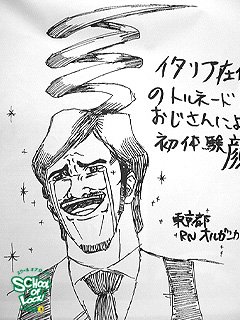 イタリア在住
のトルネード
おじさんによる
初体験顔
東京都
RN オルガン
SCHOOL
OF
LOCK!